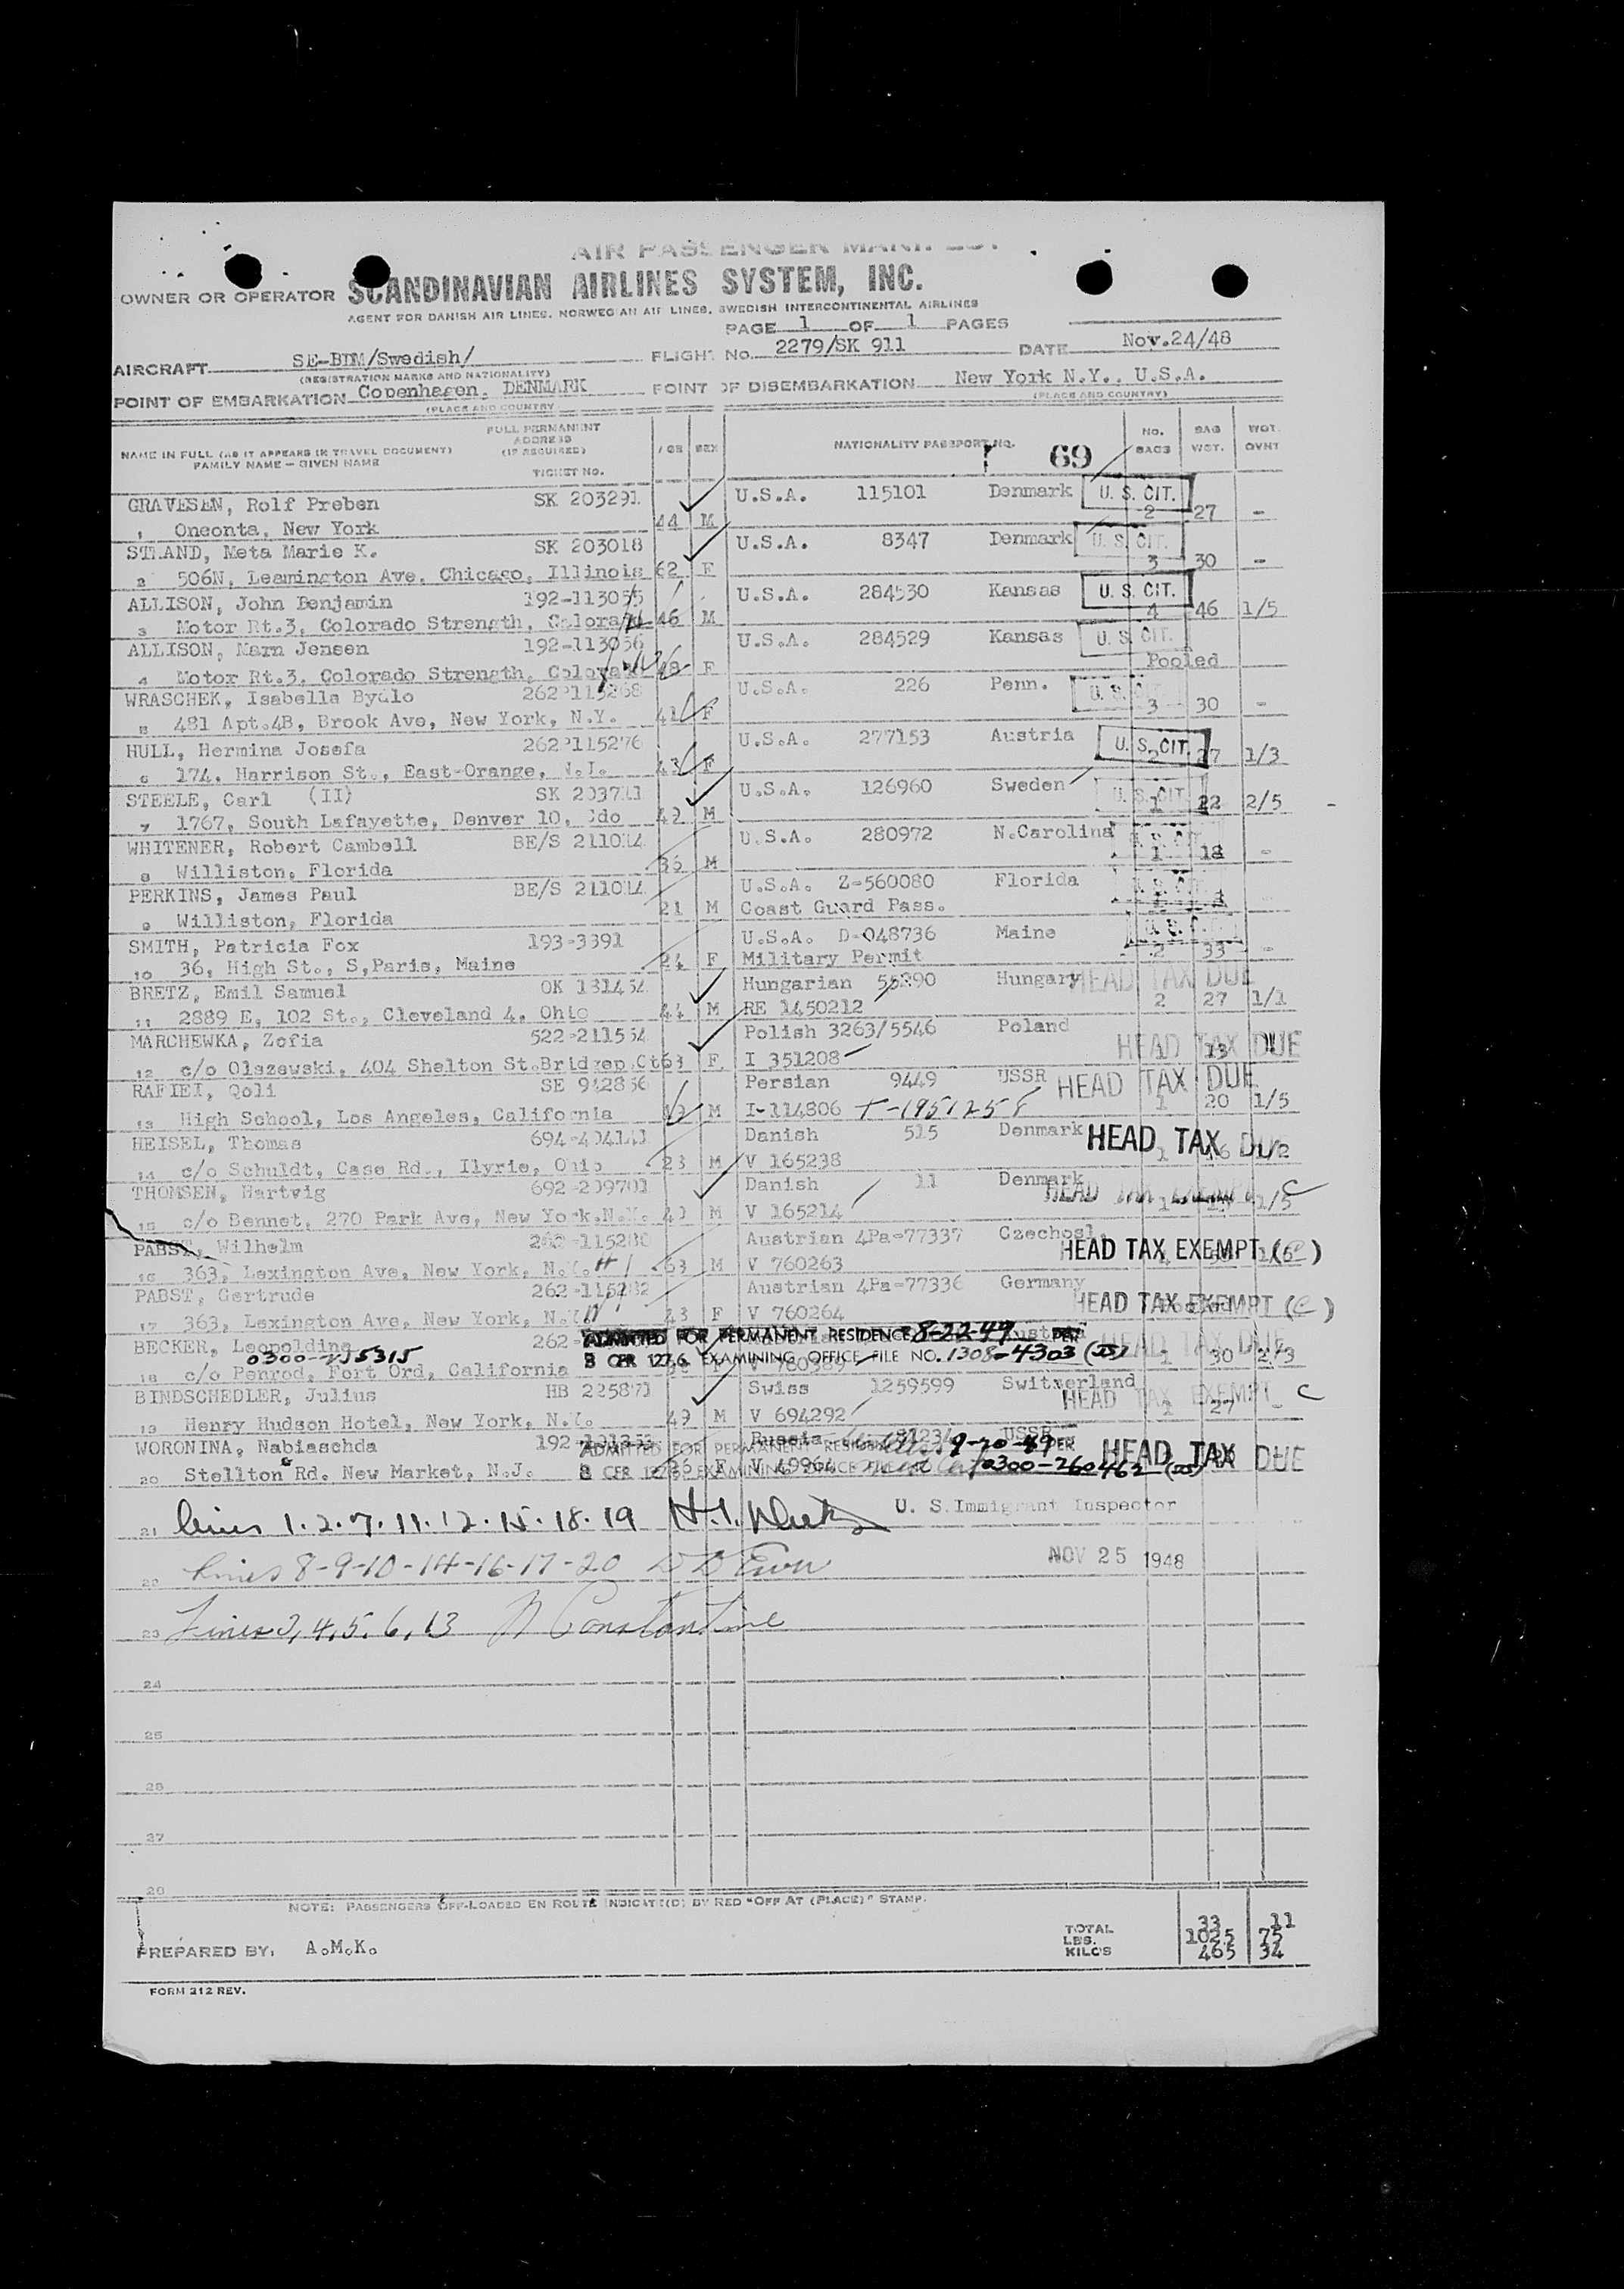 AIR PASSENGER MANIFEST
OWNER OR OPERATOR SCANDINAVIAN AIRLINES SYSTEM, INC.
AGENT FOR DANISH AIR LINES, NORWEGIAN AIR LINES, SWEDISH INTERCONTINENTAL AIRLINES
PAGE 1 OF 1 PAGES
AIRCRAFT SE-BDM/Swedish/ FLIGHT No. 2279/SK 911 DATE Nov.24/48
(REGISTRATION MARKS AND NATIONALITY)
POINT OF EMBARKATION Copenhagen, DENMARK POINT OF DISEMBARKATION New York N.Y., U.S.A.
(PLACE AND COUNTRY (PLACE AND COUNTRY)
NAME IN FULL (AS IT APPEARS IN TRAVEL DOCUMENT) FAMILY NAME — GIVEN NAME FULL PERMANENT ADDRESS (IF REQUIRED) TICKET NO. AGE SEX NATIONALITY PASSPORT NO. 69 NO. BAGS BAG WGT. WGT. OVWT
GRAVESEN, Rolf Preben SK 203291 U.S.A. 115101 Denmark U. S. CIT.
1 Oneonta, New York 44 M 2 27 -
STRAND, Meta Marie K. SK 203018 U.S.A. 8347 Denmark U. S. CIT.
2 506N, Leamington Ave. Chicago, Illinois 62 F 3 30 -
ALLISON, John Benjamin 192-113055 U.S.A. 284530 Kansas U. S. CIT.
3 Motor Rt.3, Colorado Strength, 46 M 4 46 1/5
ALLISON, Marn Jensen 192-113056 U.S.A. 284529 Kansas U. S. CIT.
4 Motor Rt.3, Colorado Strength, 48 F Pooled
WRASCHEK, Isabella Bydlo U.S.A. 226 Penn. U. S. CIT.
5 481 Apt.4B, Brook Ave, New York, N.Y. 41 F 3 30 -
HULL, Hermina Josefa 262-115276 U.S.A. 277153 Austria U. S. CIT.
6 174, Harrison St., East-Orange, N.J. 43 F 2 27 1/3
STEELE, Carl (II) U.S.A. 126960 Sweden U. S. CIT.
7 1767, South Lafayette, Denver 10, 49 M 1 22 2/5
WHITENER, Robert Cambell BE/S 211014 U.S.A. 280972 N.Carolina
8 Williston, Florida 36 M 1 18 -
PERKINS, James Paul BE/S 211014 U.S.A. Z-560080 Florida
9 Williston, Florida 21 M Coast Guard Pass.
SMITH, Patricia Fox 193-3391 U.S.A. D-048736 Maine
10 36, High St., S,Paris, Maine 24 F Military Permit 2 33 -
BRETZ, Emil Samuel OK 131454 Hungarian Hungary HEAD TAX DUE
11 2889 E, 102 St., Cleveland 4, Ohio 44 M RE 1450212 2 27 1/1
MARCHEWKA, Zofia 522-211554 Polish 3263/5546 Poland HEAD TAX DUE
12 c/o Olszewski, 404 Shelton St.Bridgep,Ct 63 F I 351208 1 13
RAFIEI, Qoli SE 942856 Persian 9449 USSR HEAD TAX DUE
13 High School, Los Angeles, California 19 M I-114806 T-1951258 1 20 1/5
HEISEL, Thomas Danish 515 Denmark HEAD TAX DUE
14 c/o Schuldt, Case Rd., Ilyrie, Ohio 23 M V 165238
THOMSEN, Hartvig 692-209701 Danish 11 Denmark HEAD TAX EXEMPT C
15 c/o Bennet, 270 Park Ave, New York.N.Y. M V 165214 1/5
PABST, Wilhelm 262-115280 Austrian 4Pa-77337 Czechosl. HEAD TAX EXEMPT (C)
16 363, Lexington Ave, New York, N.Y. 63 M V 760263
PABST, Gertrude 262-115282 Austrian 4Pa-77336 Germany HEAD TAX EXEMPT (C)
17 363, Lexington Ave, New York, N.Y. 43 F V 760264
BECKER, Leopoldine 262- ADMITTED FOR PERMANENT RESIDENCE 8-22-49 PER Austria HEAD TAX DUE
8 CFR 127.6 EXAMINING OFFICE FILE NO. 1308-4303 (JS) 1 30
18 c/o Penrod, Fort Ord, California
BINDSCHEDLER, Julius HB 225871 Swiss 1259599 Switzerland HEAD TAX EXEMPT C
19 Henry Hudson Hotel, New York, N.Y. 49 M V 694292 27 -
WORONINA, Nabiaschda Russia USSR HEAD TAX DUE
ADMITTED FOR PERMANENT RESIDENCE 9-20-49 PER
20 Stellton Rd. New Market, N.J. 8 CFR 127.6 EXAMINING OFFICE FILE NO. 0300-260462 (JS)
21 Lines 1. 2. 7. 11. 12. 15. 18. 19 U. S. Immigrant Inspector
22 Lines 8-9-10-14-16-17-20 NOV 25 1948
23 Lines 3, 4, 5, 6, 13 N Constantine
24
25
26
27
28
NOTE: PASSENGERS OFF-LOADED EN ROUTE INDICATE(D) BY RED "OFF AT (PLACE)" STAMP.
TOTAL 33 11
LBS. 1025 75
PREPARED BY: A.M.K. KILOS 465 34
FORM 212 REV.